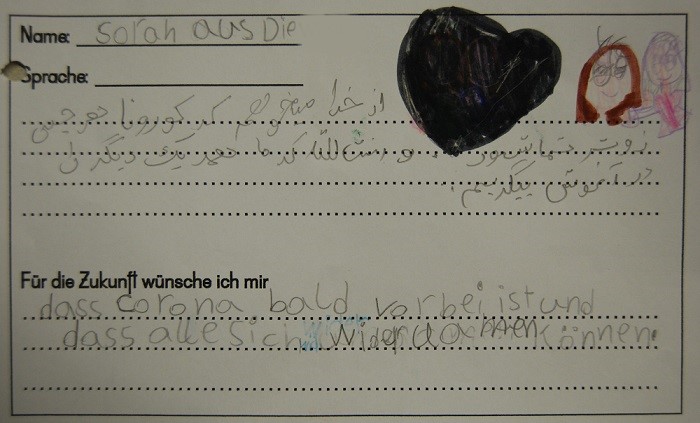 Name: Sorah aus Die
Sprache:
از خدا میخواهم که کورونا هرچیی
زوتر تمام شود. و انشاللّا که ما همه یک دیگر را
در آغوش بیگریم.
Für die Zukunft wünsche ich mir
dass corona bald vorbei ist und
dass alle sich wider können